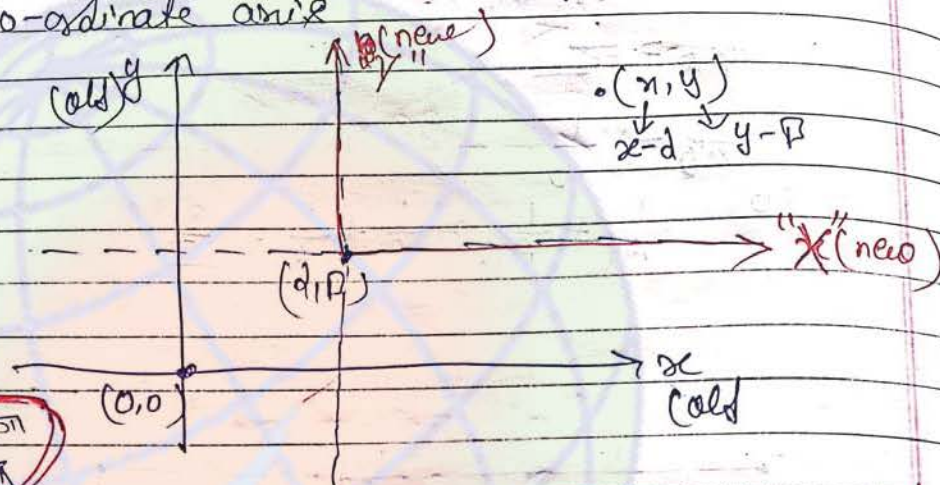 o-ordinate axis
(old) y
y" (new)
.(x, y)
x-α y-β
"X" (new)
(α, β)
x
(old
(0,0)